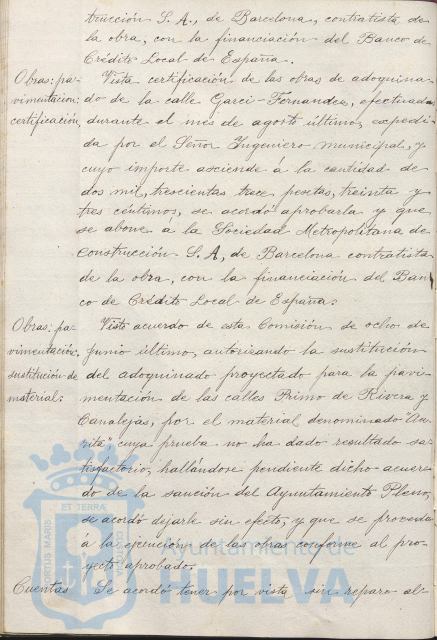 trucción S. A., de Barcelona, contratista de
la obra, con la financiación del Banco de
Crédito Local de España.
Obras: pa- Vista certificación de las obras de adoquina-
vimentación: do de la calle Garci-Fernandez, efectuadas
certificación, durante el mes de agosto último, expedi-
da por el Señor Ingeniero municipal, y
cuyo importe asciende á la cantidad de
dos mil, trescientas trece pesetas, treinta y
tres céntimos, se acordó aprobarla y que
se abone a la Sociedad Metropolitana de
Construcción S. A, de Barcelona contratista
de la obra, con la financiación del Ban
co de Crédito Local de España.
Obras: pa- Visto acuerdo de esta Comisión de ocho de
vimentación: junio último, autorizando la sustitución
sustitución de del adoquinado proyectado para la pavi-
material: mentación de las calles Primo de Rivera y
Canalejas, por el material denominado
cuya prueba no ha dado resultado sa-
tisfactorio, hallándose pendiente dicho acuer-
do de la sanción del Ayuntamiento Pleno,
se acordó dejarle sin efecto, y que se proceda
á la ejecución de las obras conforme al pro-
yecto aprobado.
Cuentas Se acordó tener por vista sin reparo al-
ET TERRA
PORTUS MARIS
CUSTODIA
Ayuntamiento de
HUELVA